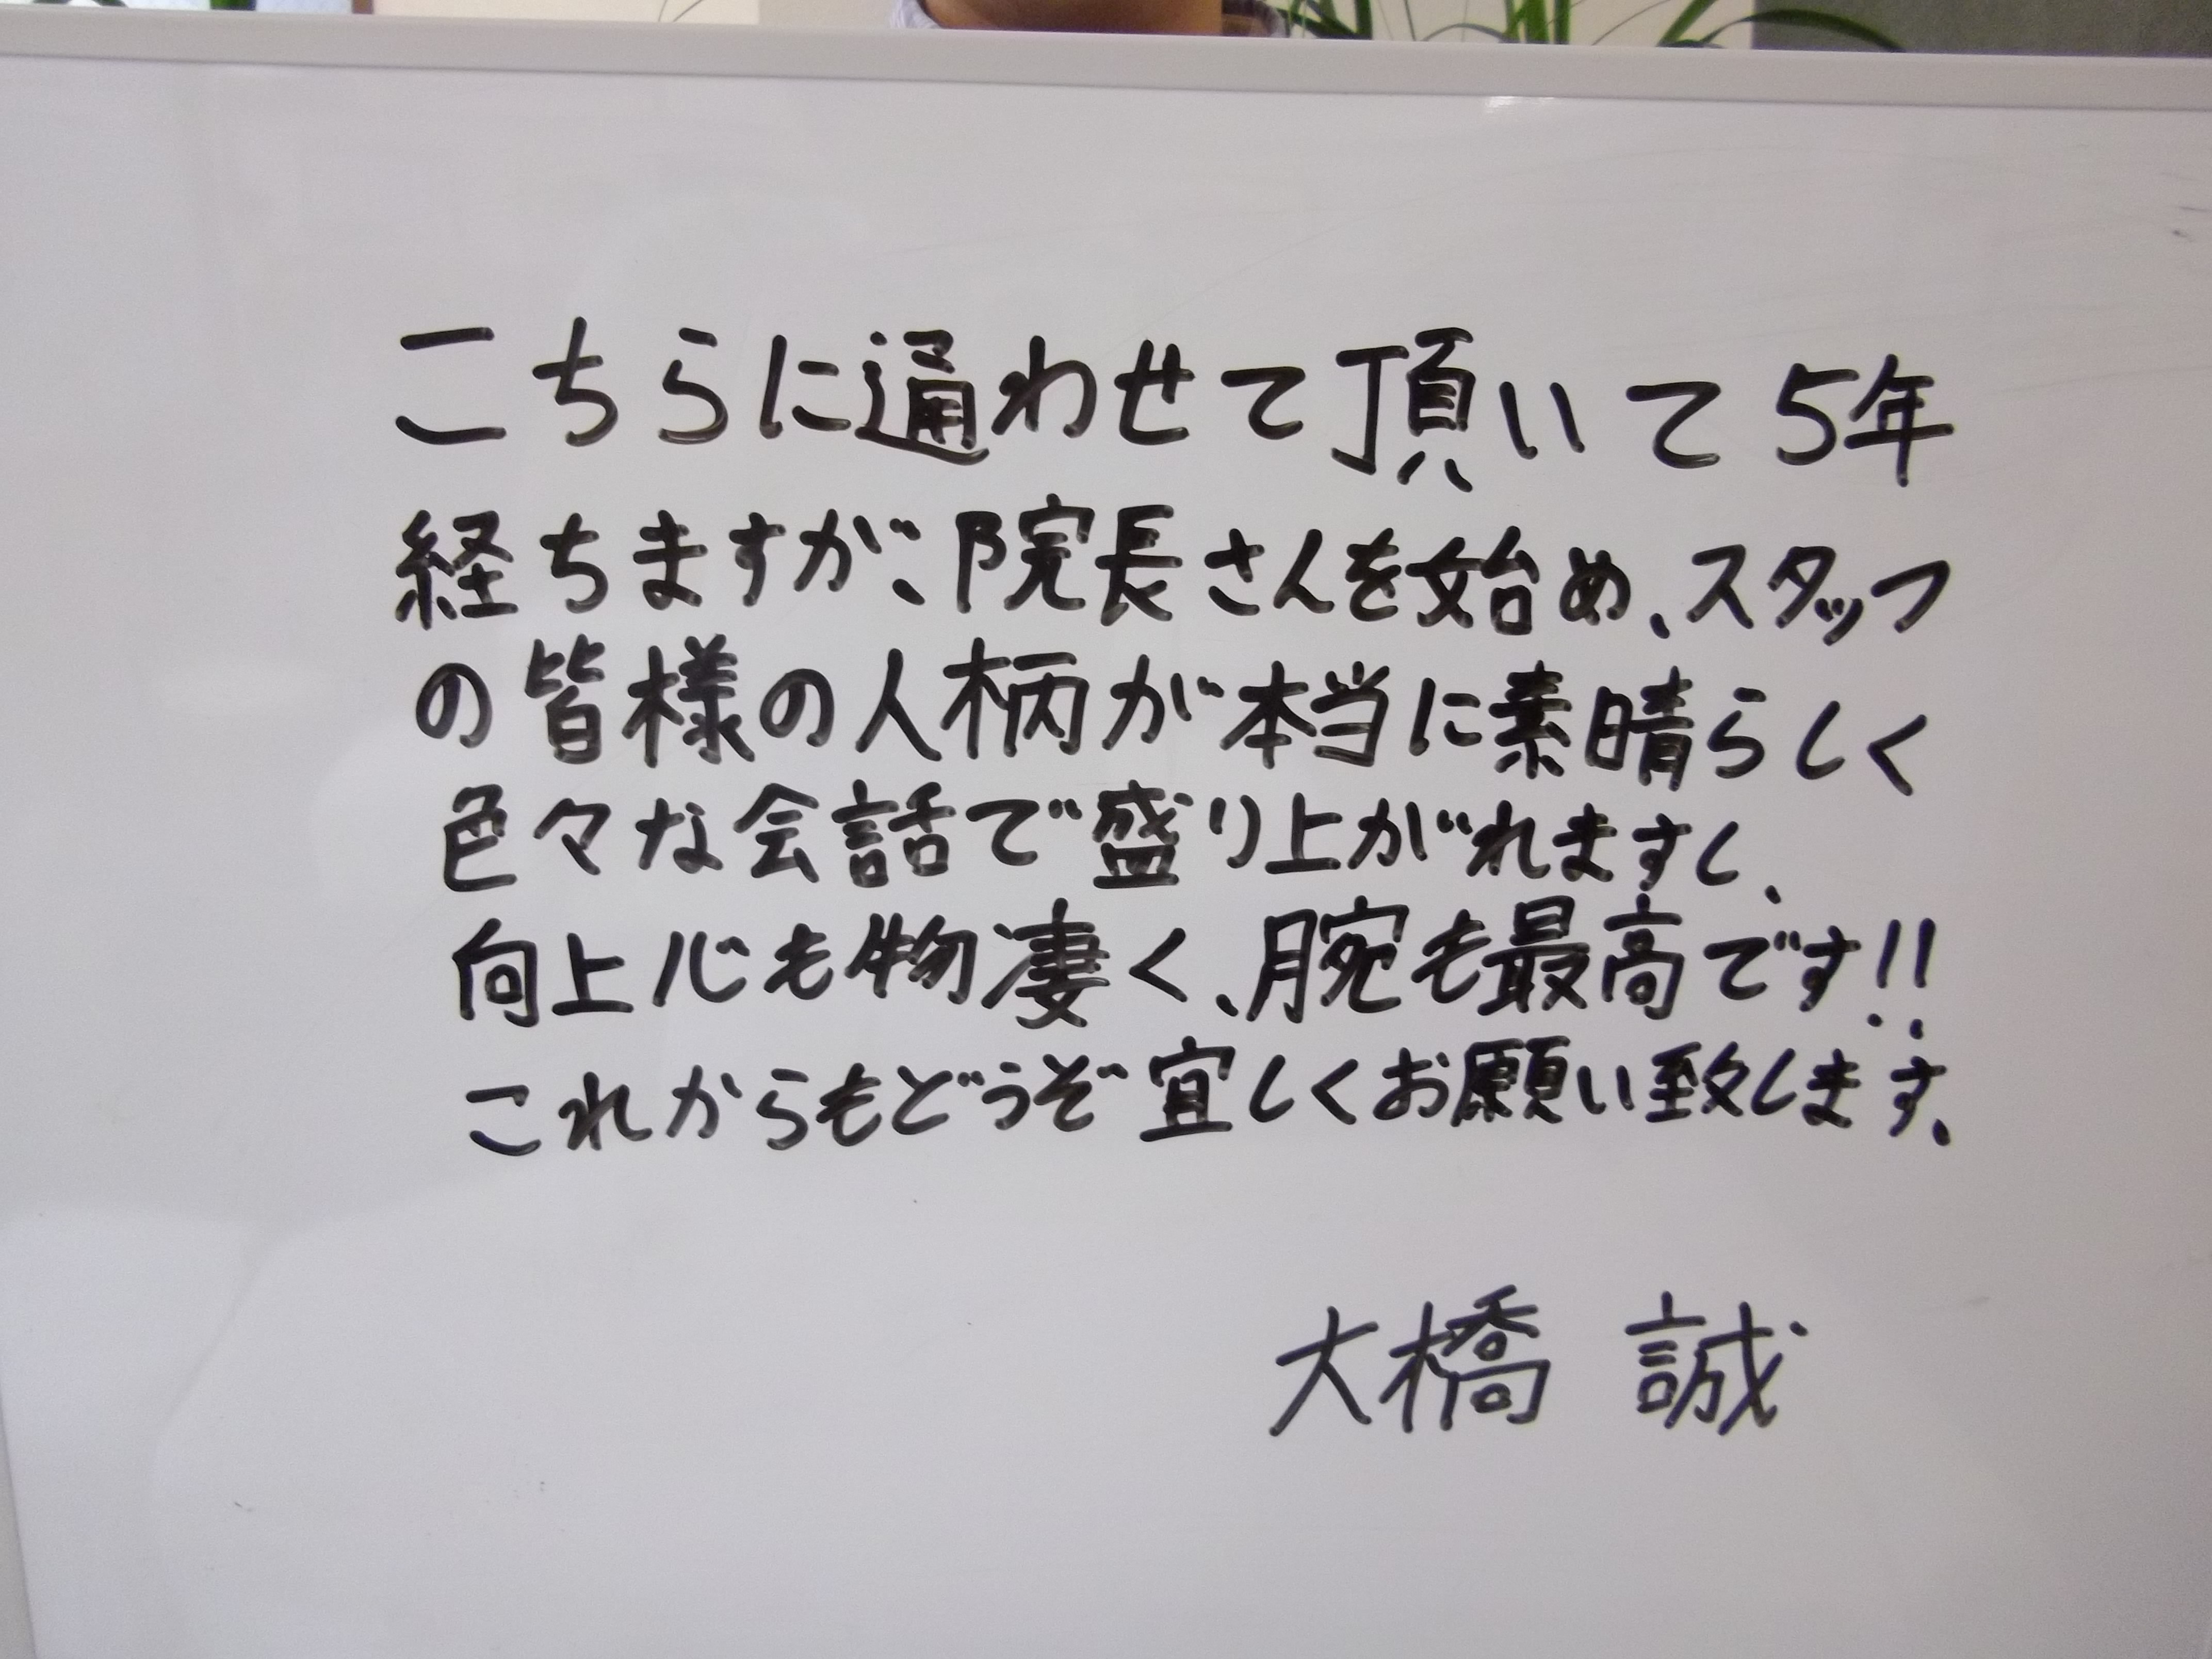 こちらに通わせて頂いて5年
経ちますが、院長さんを始め、スタッフ
の皆様の人柄が本当に素晴らしく
色々な会話で盛り上がれますし、
向上心も物凄く、腕も最高です!!
これからもどうぞ宜しくお願い致します、
大橋 誠